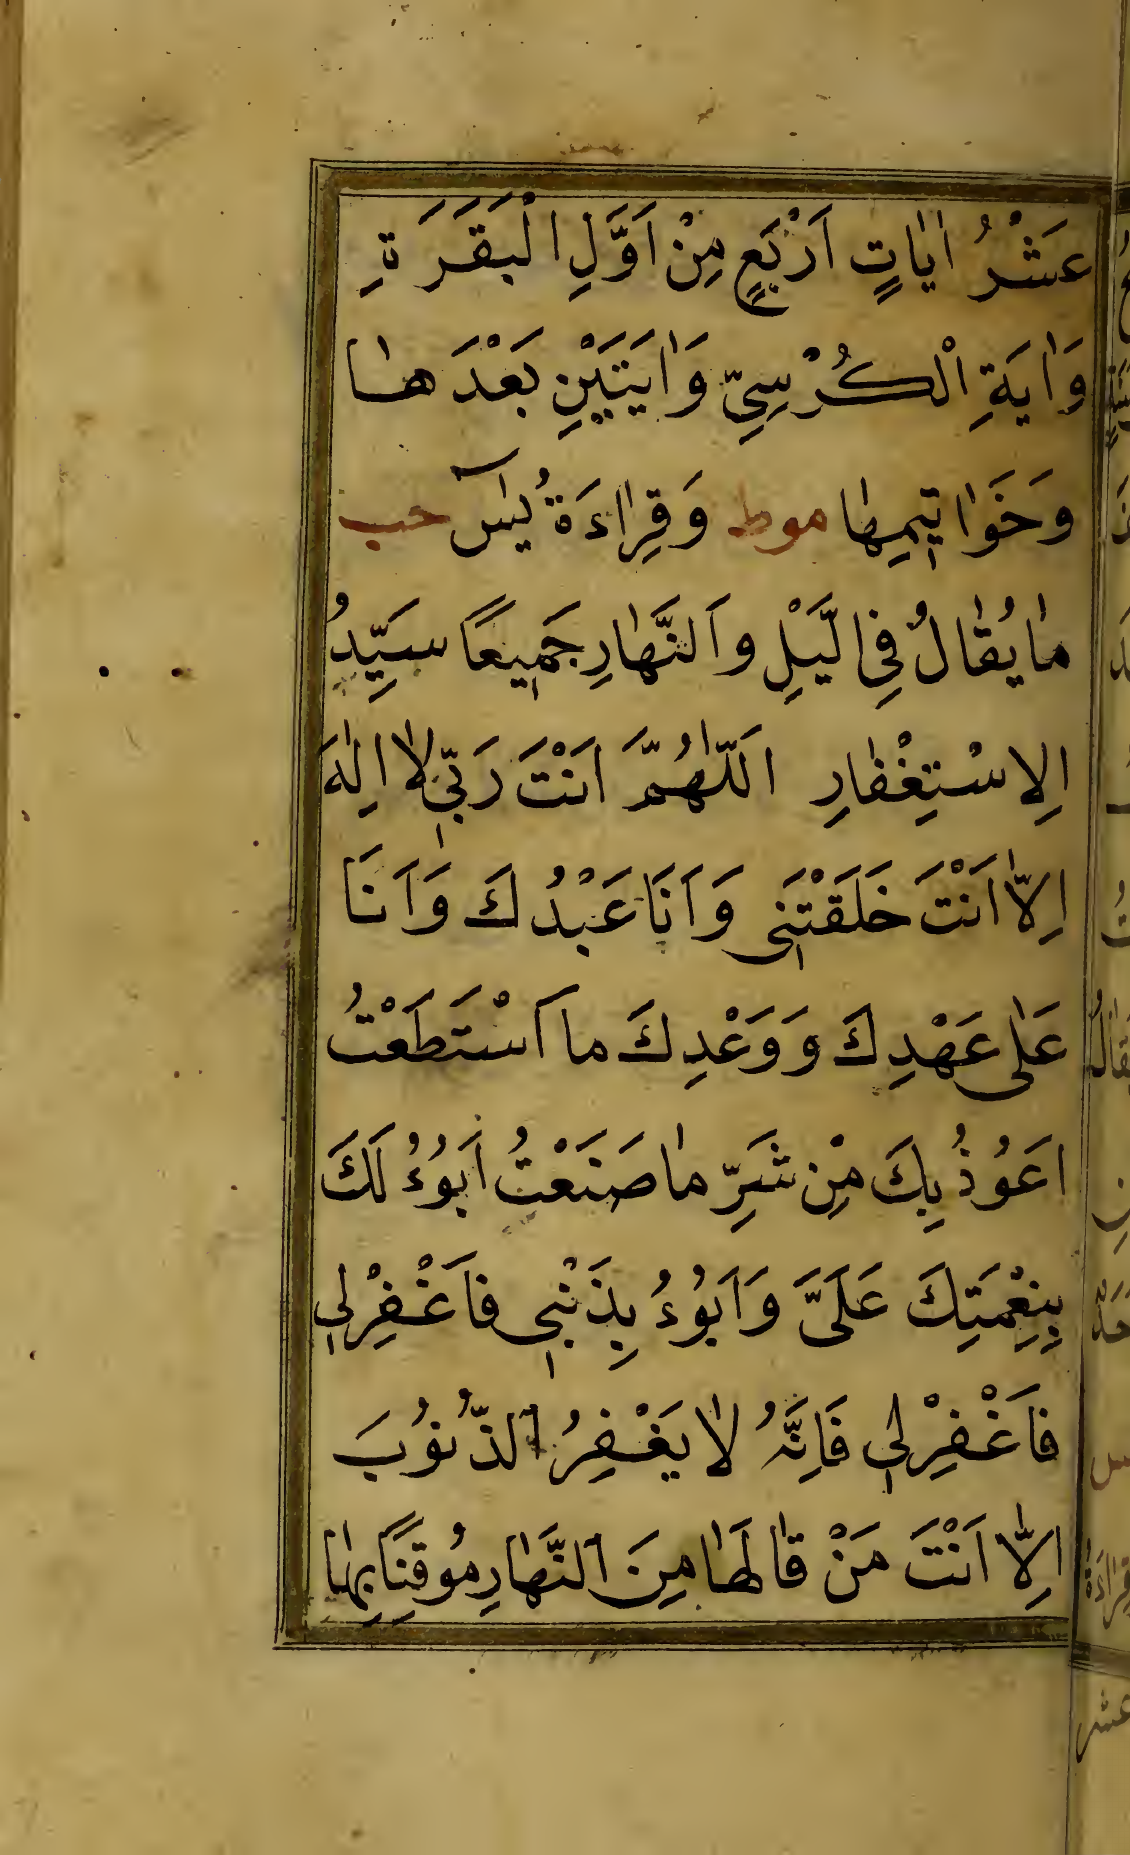 عَشْرُ اٰيٰاتٍ اَرْبَعٍ مِنْ اَوَّلِ الْبَقَرَةِ
وَاٰيَةِ الْكُرْسِىِّ وَاٰيَتَيْنِ بَعْدَهٰا
وَخَوٰاتِيمِهٰا موط وَقِرٰاءَةُ يٰسٓ حب
مٰا يُقٰالُ فِى الَّيْلِ وَالنَّهٰارِ جَمِيعًا سَيِّدُ
الِاسْتِغْفٰارِ اَللّٰهُمَّ اَنْتَ رَبِّى لٰا اِلٰهَ
اِلّٰا اَنْتَ خَلَقْتَنِى وَاَنَا عَبْدُكَ وَاَنَا
عَلٰى عَهْدِكَ وَوَعْدِكَ مااَسْتَطَعْتُ
اَعُوُذُ بِكَ مِنْ شَرِّ مٰا صَنَعْتُ اَبُوُءُ لَكَ
بِنِعْمَتِكَ عَلَىَّ وَاَبُوُءُ بِذَنْبِى فاَغْفِرْلِى
فاَغْفِرْلِى فَاِنَّهُ لٰا يَغْفِرُ الذُّنوُبَ
اِلّٰا اَنْتَ مَنْ قٰالَهٰا مِنَ النَّهٰارِ مُوقِنًا بِهٰا
عشر